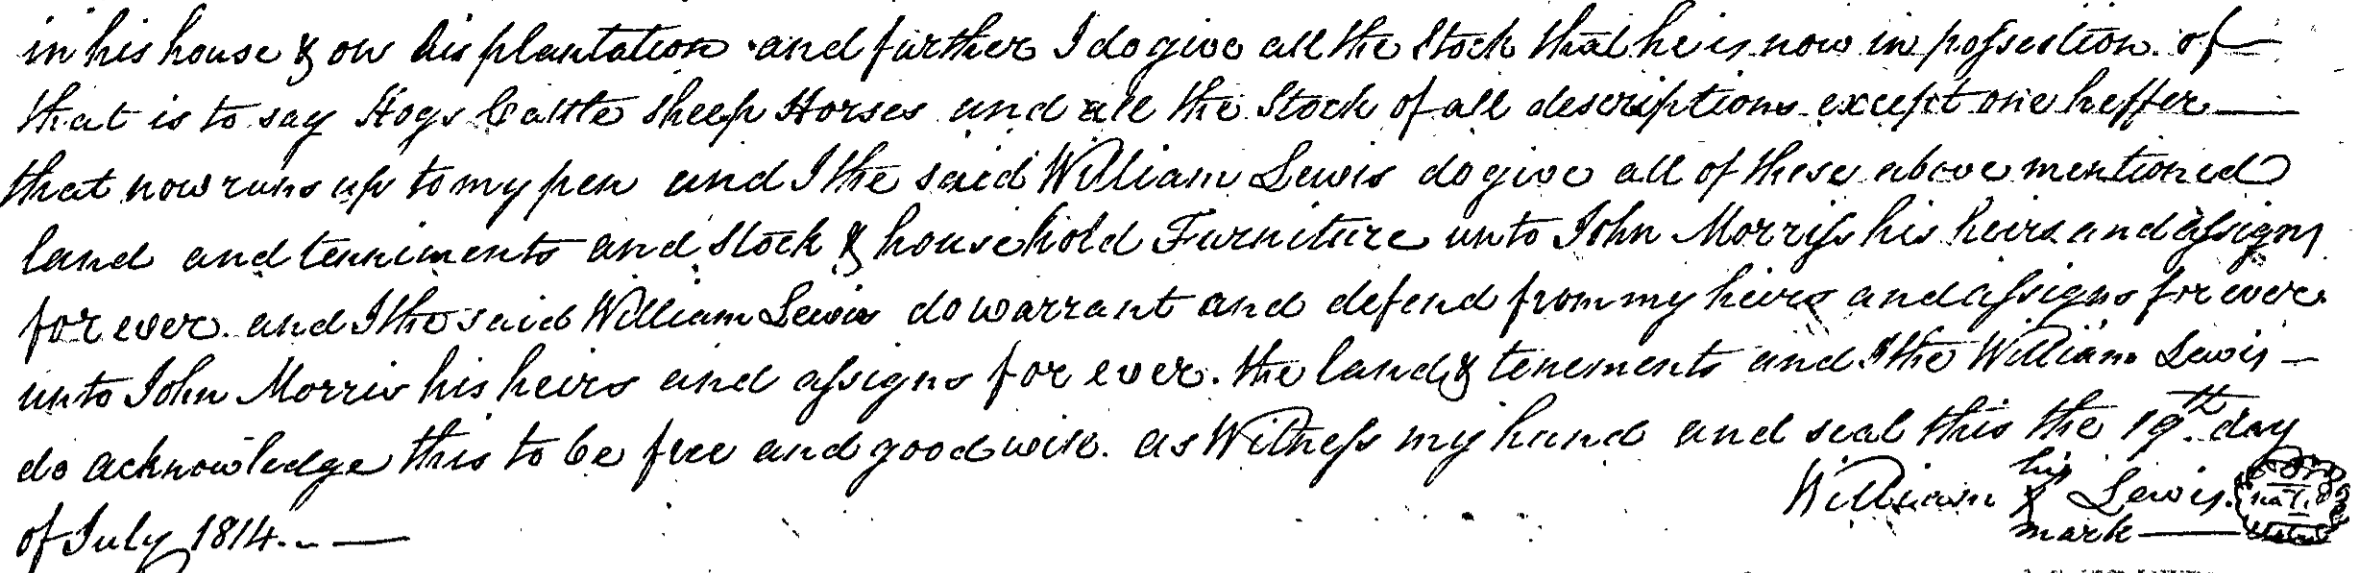 in his house & on his plantation and further I do give all the Stock that he is now in possestion of
that is to say Hogs Cattle Sheep Horses and all the Stock of all descriptions except one heffer
that now runs up to my pen and I the said William Lewis do give all of these above mentioned
land and tenniments and Stock & household Furniture unto John Morriss his heirs and assigns
for ever. and I the said William Lewis do warrant and defend from my heirs and assigns for ever
unto John Morris his heirs and assigns for ever. the land & tenements and I the William Lewis
do acknowledge this to be free and good will. as Witness my hand and seal this the 19th day
of July 1814.
William his X Lewis.
mark